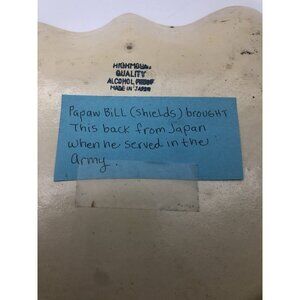 HIGHMOUNT
QUALITY
ALCOHOL PROOF
MADE IN JAPAN
Papaw Bill (Shields) brought
This back from Japan
when he served in the
Army.